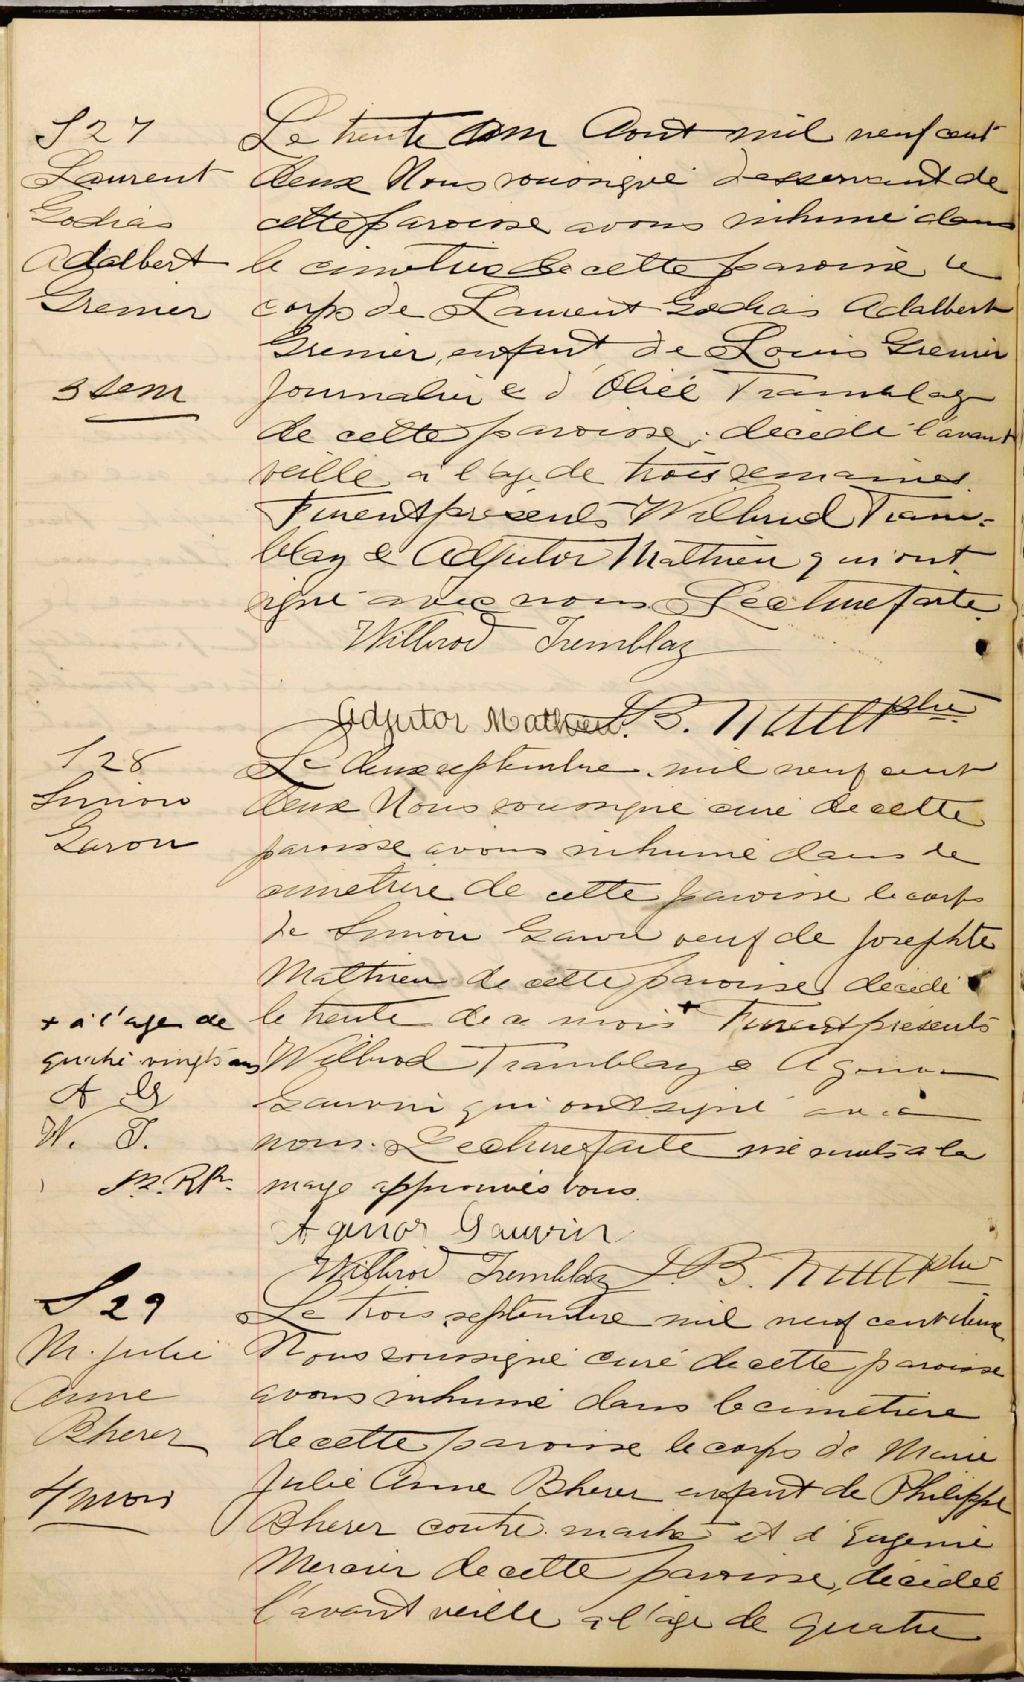 S 27
Laurent
Godias
Adalbert
Grenier
3 sem
Le trente un Aout mil neuf cent
deux Nous soussigné desservant de
cette paroisse avons inhumé dans
le cimetière de cette paroisse le
corps de Laurent Godias Adalbert
Grenier, enfant de Louis Grenier
journalier & d'
Tramblay
de cette paroisse, décédé l'avant
veille a l'age de trois semaines.
Furent présents Wilbrod Tram-
blay & Adjutor Mathieu qui ont
signé avec nous Lecture faite.
Wilbrod Tremblay
Adjutor Mathieu J. B. ptre
S 28
Simon
Garon
Le deux septembre mil neuf cent
deux Nous soussigné curé de cette
paroisse avons inhumé dans le
cimetière de cette paroisse le corps
de Simon Garon veuf de Josephte
Mathieu de cette paroisse décédé
le trente de ce mois + Furent présents
+ a l'age de
quatre vingts ans
A G
W. T.
Wilbrod Tramblay & Agenor
Gauvin qui ont signé avec
nous. Lecture faite
marge approuvés bons.
Agenor Gauvin
Wilbrod Tremblay J. B. ptre
S 29
M. Julie
Anne
Bherer
4 mois
Le trois septembre mil neuf cent deux
Nous soussigné curé de cette paroisse
avons inhumé dans le cimetière
de cette paroisse le corps de Marie
Julie Anne Bherer enfant de Philippe
Bherer contre maitre et d'Eugenie
Mercier de cette paroisse, décédée
l'avant veille a l'age de quatre